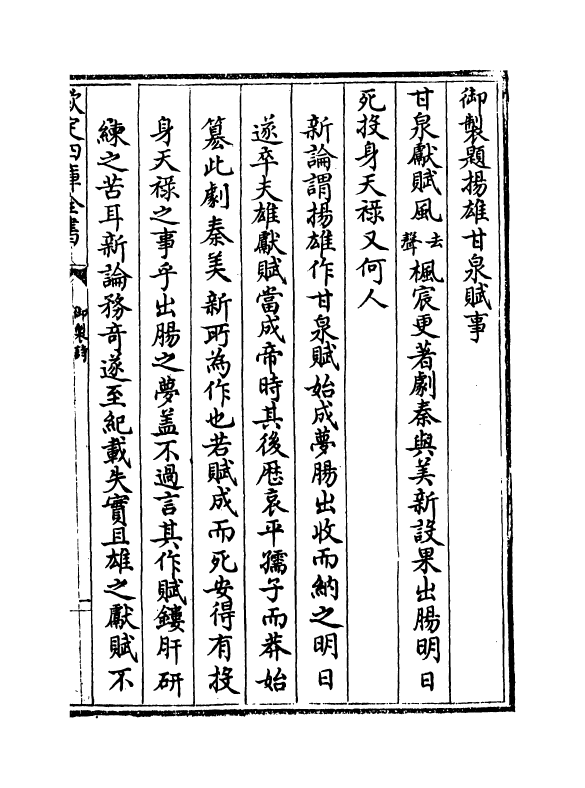 御製題揚雄甘泉賦事
甘泉獻賦風去聲楓宸更著劇秦與美新設果出腸明日
死投身天祿又何人
新論謂揚雄作甘泉賦始成夢腸出收而納之明日
遂卒夫雄獻賦當成帝時其後歷哀平孺子而莽始
簒此劇秦美新所為作也若賦成而死安得有投
身天祿之事乎出腸之夢葢不過言其作賦鏤肝研
練之苦耳新論務奇遂至紀載失實且雄之獻賦不
欽定四庫全書
御製詩
一